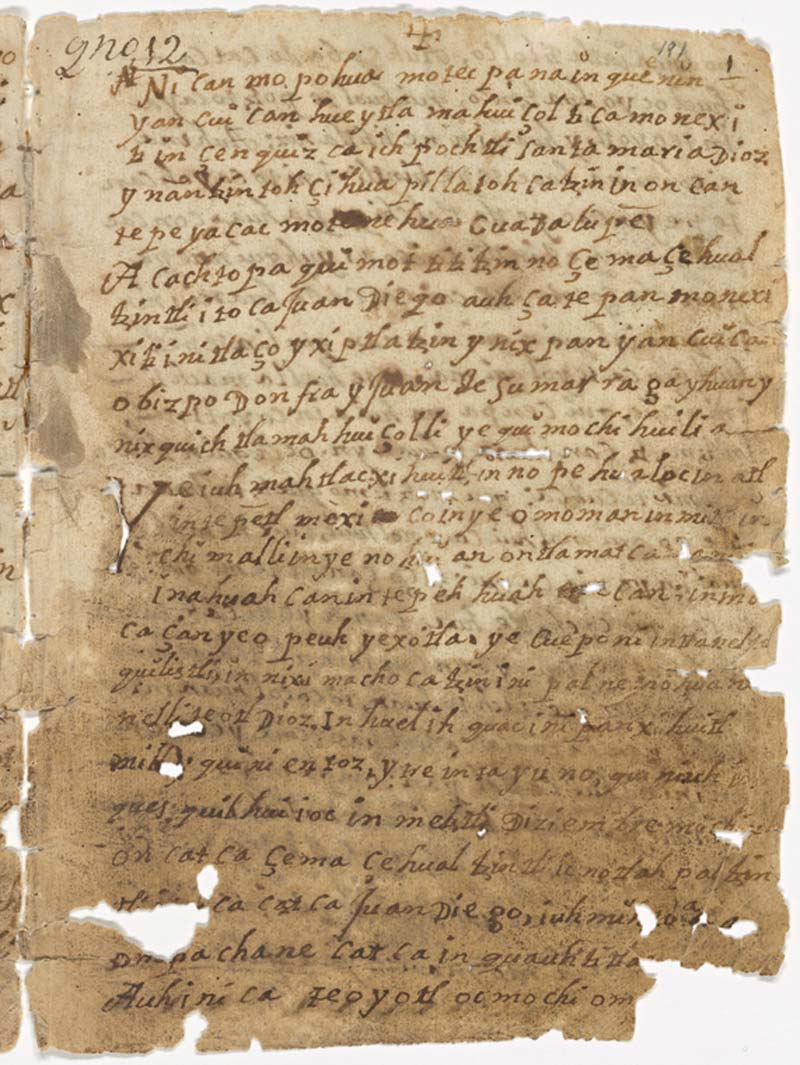 qno 12
✝
191
1
Ni can mo pohua motec pa na in quē nin
yan cui can hue ytla ma hui çol ti ca mo nex i
ti in çen quiz ca ich poch tli Santa maria Dioz
y nantzin toh çi hua pilla toh ca tzin in on can
te pe ya cac mote nehua Guadalupe
A cach to pa qui mot ti ti tzin no çe ma çe hual
tzintli i to ca Juan Diego auh ça te pan mo nexi
xi ti in i tla ço y xi ptla tzin y nix pan yan cui ca
obizpo Don fra y Juan de Sumarraga yhuan y
nix quich tla mah hui çolli ye qui mo chi hui li a
Ye iuh mah tlac xi huitl in no pe hua loc in atl
in te petl mexi co in ye o mo man in mitl in
chi malli in ye no hui an on tla mat ca
i na huah can in te peh huah can in mo
ca çan ye o peuh ye xo tla ye cue po ni in tla nel to
qui lis tli in nixi macho ca tzin in i pal ne mo huan
nelli teotl Dioz In huel ih quac in i pan xi huitl
mill y qui ni en toz, y tre inta yu no, qui niuh
ques quil hui ioc in metztli Diziembre mochi
on cat ca çe ma çe hual tzintli ic no tlah pal tzin
tli ca cat ca Juan Diego, iuh mi to a
om pa chane cat ca in quauhtitla
Auh in i ca teo yotl oc mo chi om